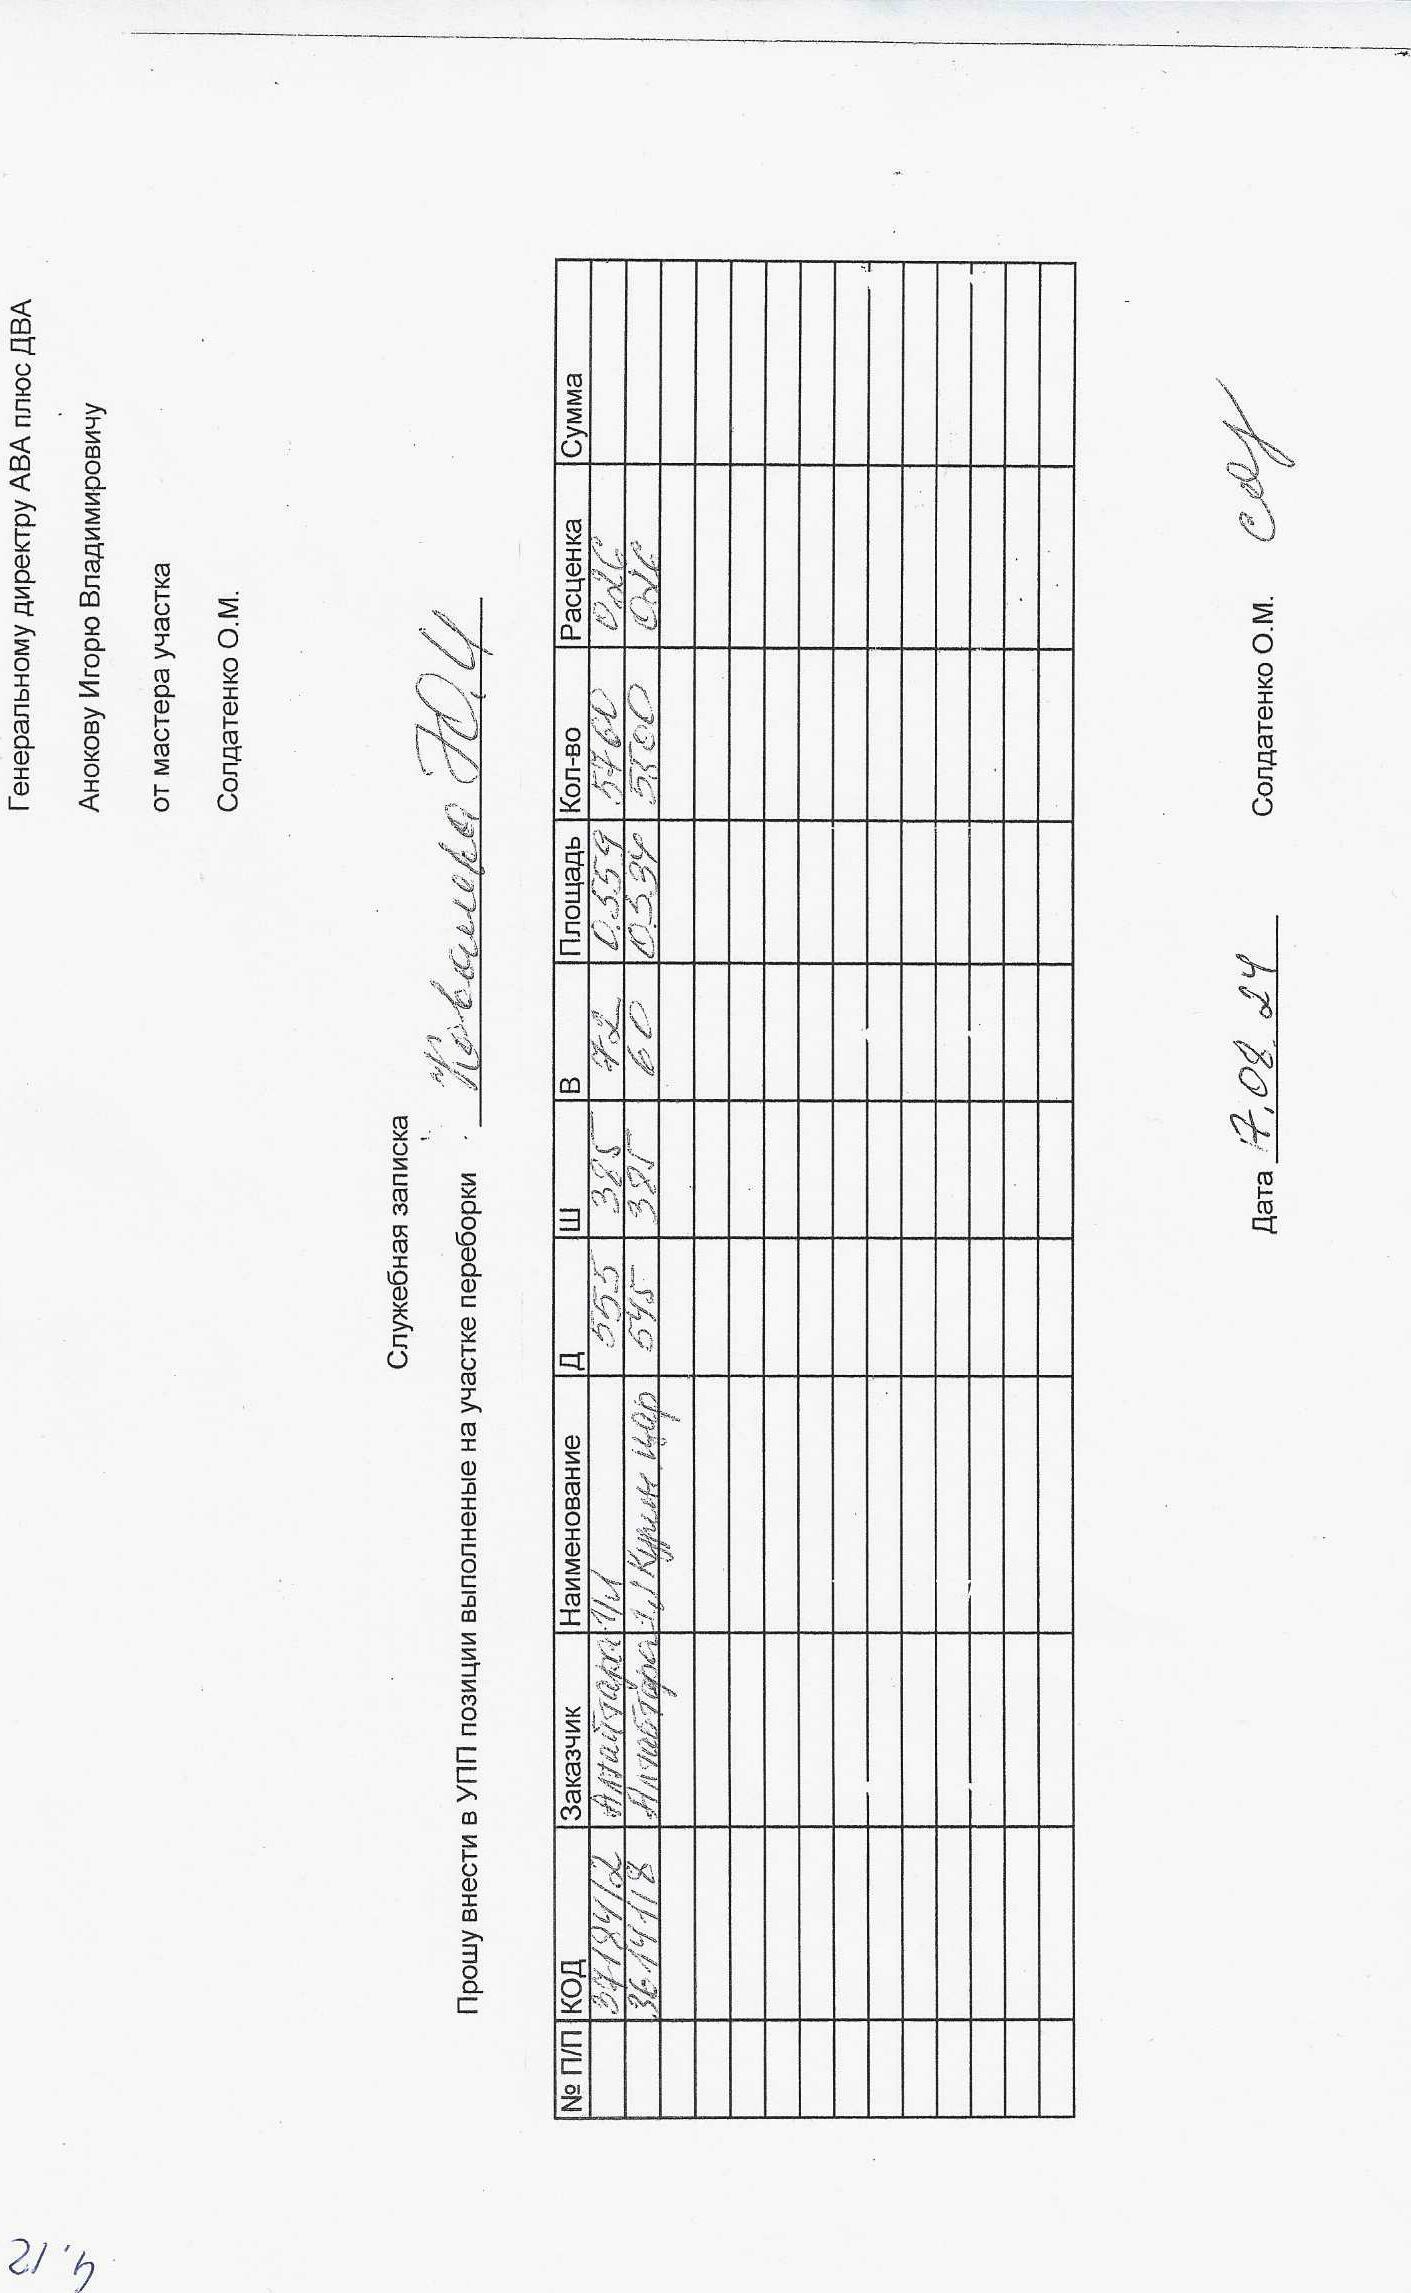 4.12
Генеральному директру АВА плюс ДВА
Анокову Игорю Владимировичу
от мастера участка
Солдатенко О.М.
Служебная записка
Прошу внести в УПП позиции выполненые на участке переборки Ю.
№ П/П КОД Заказчик Наименование Д Ш В Площадь Кол-во Расценка Сумма
37184/2 Алтайтара 555 385 72 0.559 5760 026
36141/8 Алтайтара цар 545 385 60 0.534 5500 026
Дата 7.08.24 Солдатенко О.М.